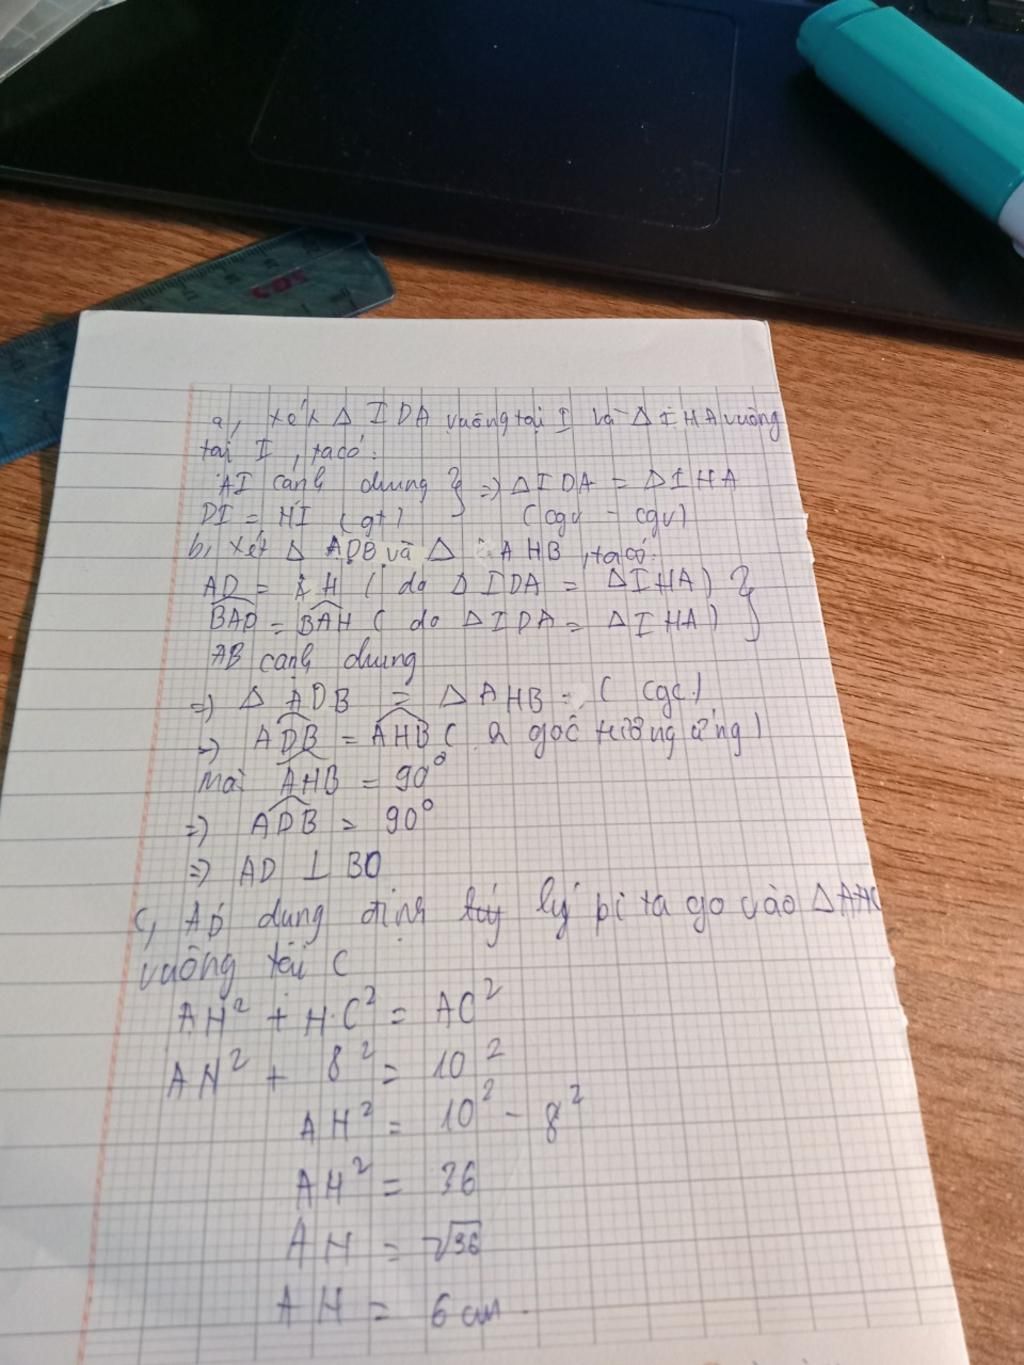 a, xét Δ IDA vuông tại I và Δ IHA vuông
tại I, ta có:
AI cạnh chung } => Δ IDA = Δ IHA
DI = HI (gt) (cgv - cgv)
b, Xét Δ ADB và Δ AHB, ta có:
AD = AH ( do Δ IDA = Δ IHA) }
BAD = BAH ( do Δ IDA = Δ IHA)
AB cạnh chung
=> Δ ADB = Δ AHB ( cgc)
=> ADB = AHB ( 2 góc tương ứng)
Mà AHB = 90°
=> ADB = 90°
=> AD ⊥ BD
c, Áp dụng định lý pi ta go vào Δ
vuông tại C
AH² + HC² = AC²
AH² + 8² = 10²
AH² = 10² - 8²
AH² = 36
AH = √36
AH = 6 cm.